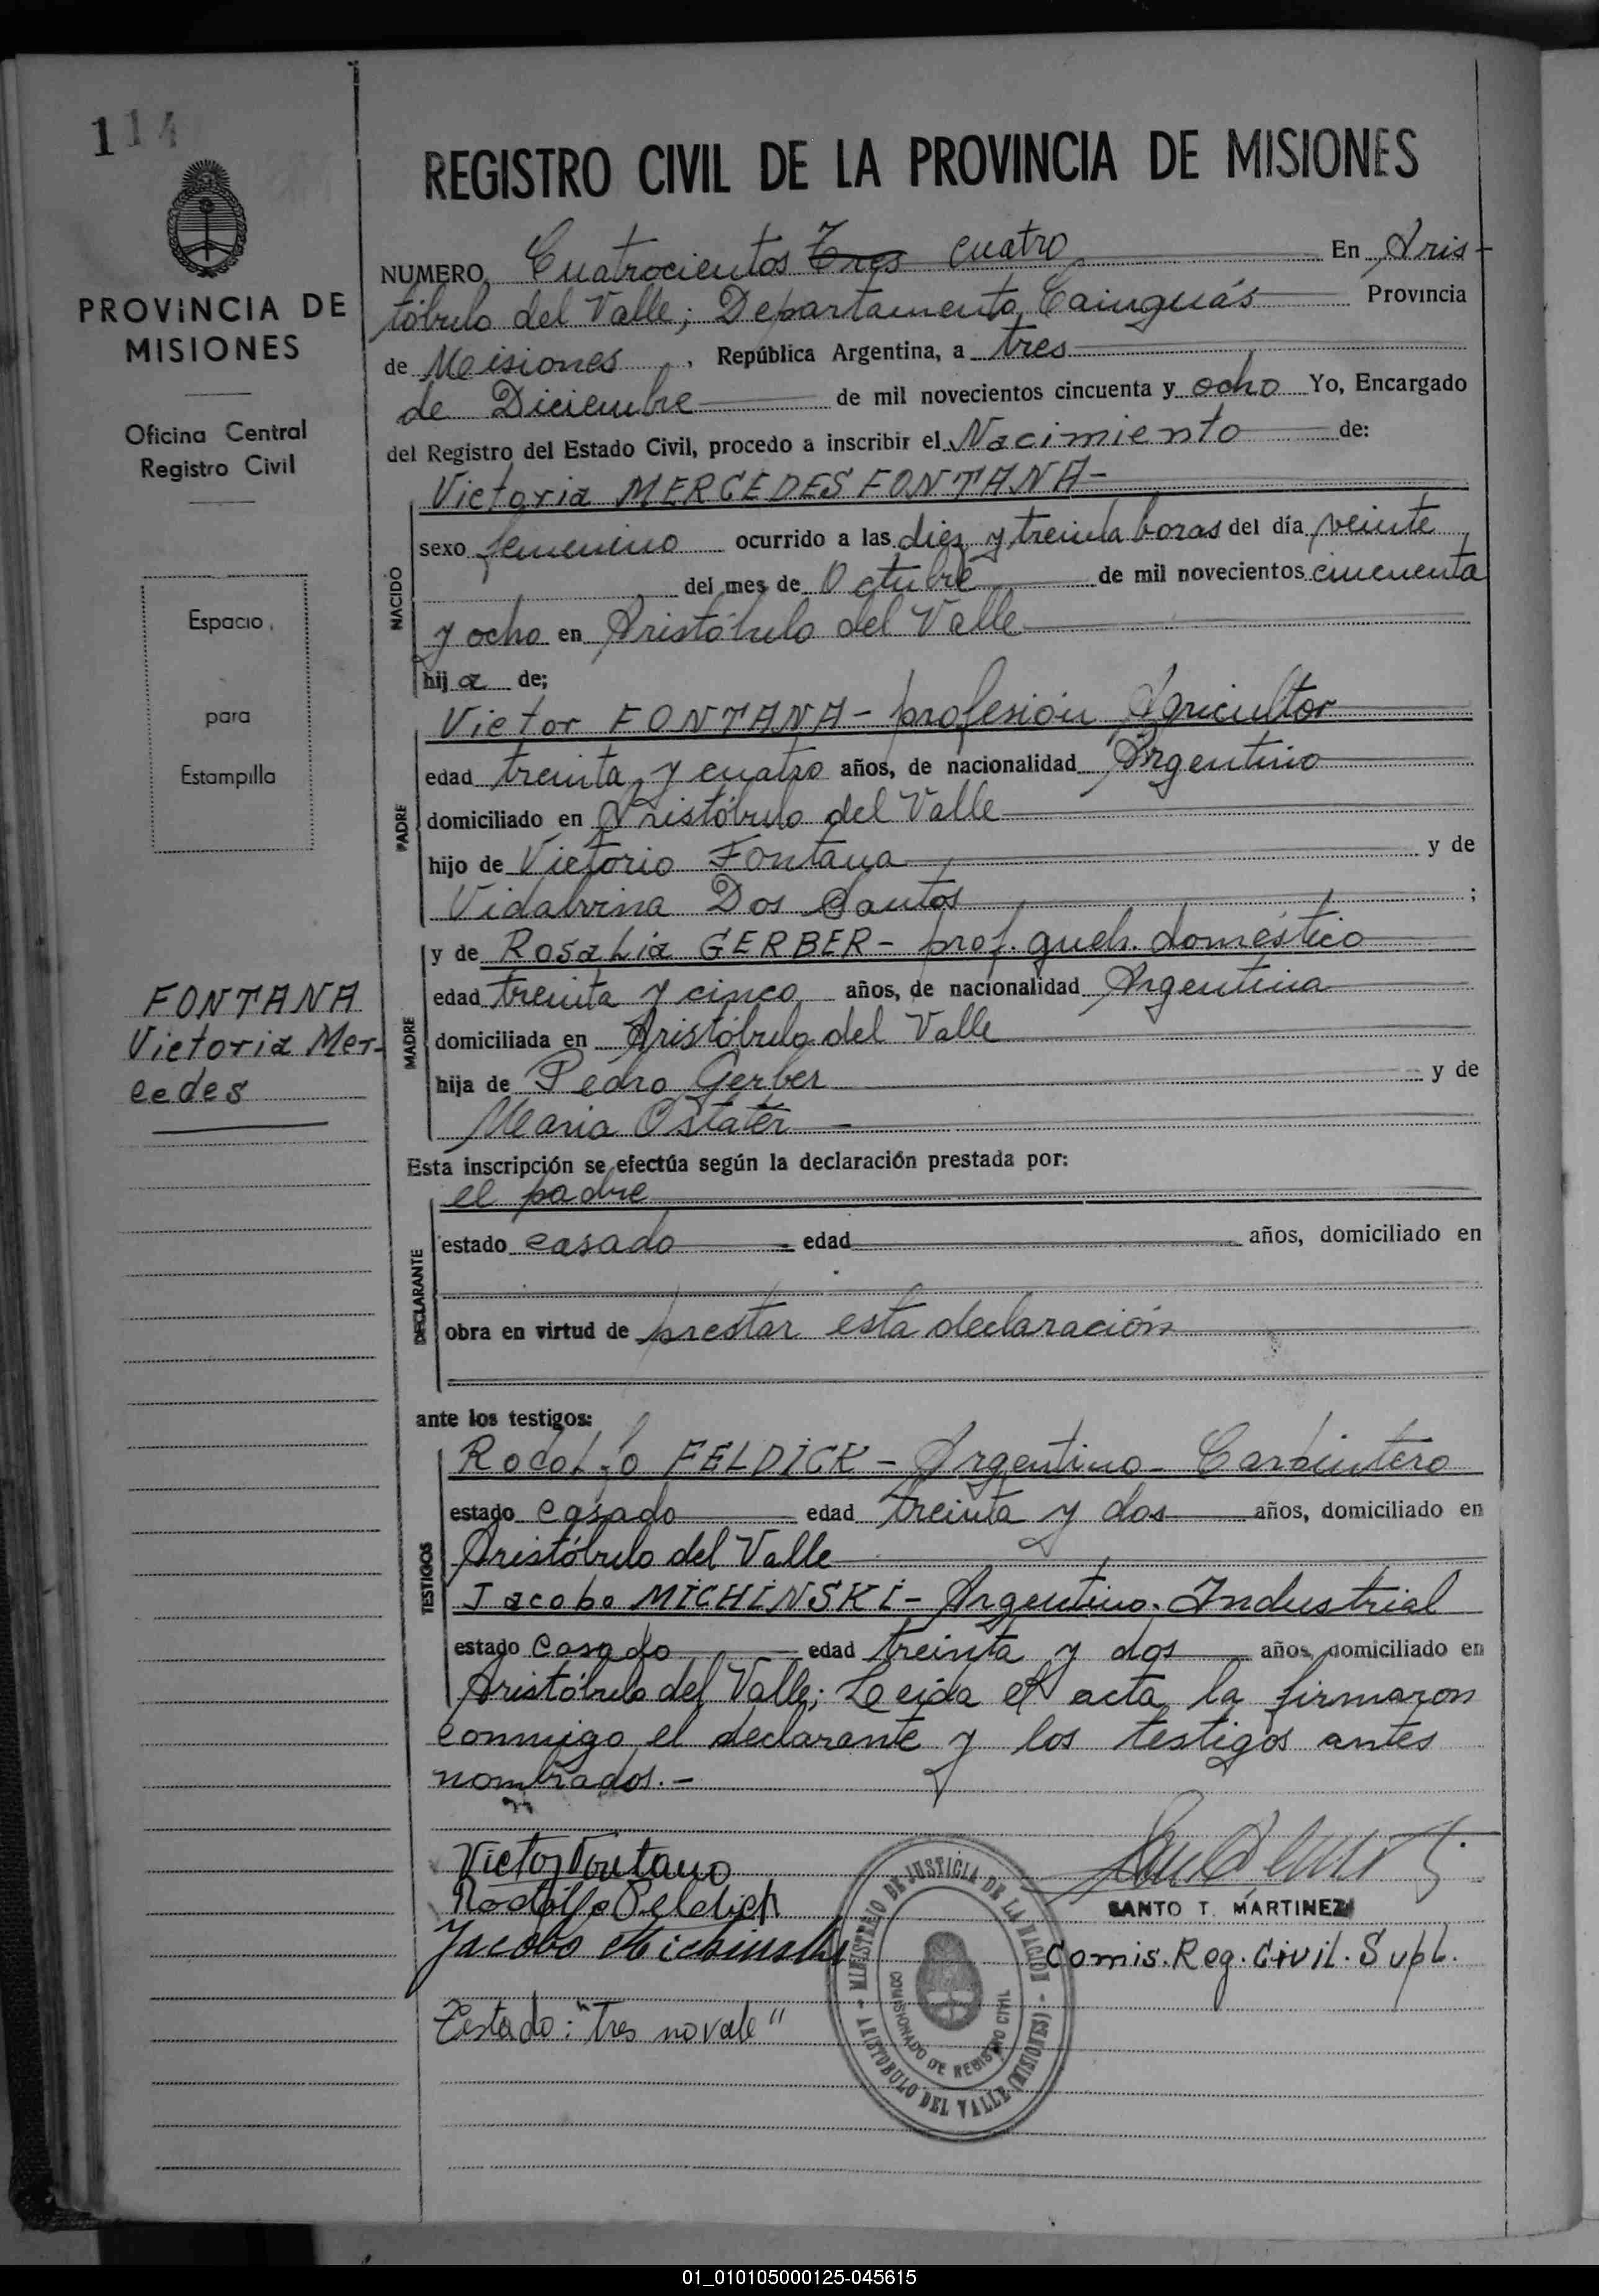 114
REGISTRO CIVIL DE LA PROVINCIA DE MISIONES
PROVINCIA DE
MISIONES
Oficina Central
Registro Civil
Espacio
para
Estampilla
FONTANA
Victoria Mer-
cedes
NUMERO Cuatrocientos Tres cuatro En Aris-
tóbulo del Valle; Departamento Cainguás Provincia
de Misiones, República Argentina, a tres
de Diciembre de mil novecientos cincuenta y ocho Yo, Encargado
del Registro del Estado Civil, procedo a inscribir el Nacimiento de:
Victoria MERCEDES FONTANA-
NACIDO
sexo femenino ocurrido a las diez y treinta horas del día veinte
del mes de Octubre de mil novecientos cincuenta
y ocho en Aristóbulo del Valle
hija de;
Victor FONTANA- profesión Agricultor
PADRE
edad treinta y cuatro años, de nacionalidad Argentino
domiciliado en Aristóbulo del Valle
hijo de Victorio Fontana y de
Vidalvina Dos Santos ;
y de Rosalia GERBER- prof. queh. doméstico
MADRE
edad treinta y cinco años, de nacionalidad Argentina
domiciliada en Aristóbulo del Valle
hija de Pedro Gerber y de
Maria Ostater
Esta inscripción se efectúa según la declaración prestada por:
el padre
DECLARANTE
estado casado edad años, domiciliado en
obra en virtud de prestar esta declaración
ante los testigos:
Rodolfo FELDICK- Argentino- Carpintero
TESTIGOS
estado casado edad treinta y dos años, domiciliado en
Aristóbulo del Valle
Jacobo MICHINSKI- Argentino. Industrial
estado casado edad treinta y dos años, domiciliado en
Aristóbulo del Valle; Leida el acta la firmaron
conmigo el declarante y los testigos antes
nombrados.-
Victor Fontana
Rodolfo Feldick
Jacobo Michinski
SANTO T. MARTINEZ
Comis. Reg. Civil. Supl.
MINISTERIO DE JUSTICIA DE LA NACION - ARISTOBULO DEL VALLE (MISIONES) -
COMISIONADO DE REGISTRO CIVIL
Testado: "Tres no vale"
01_010105000125-045615